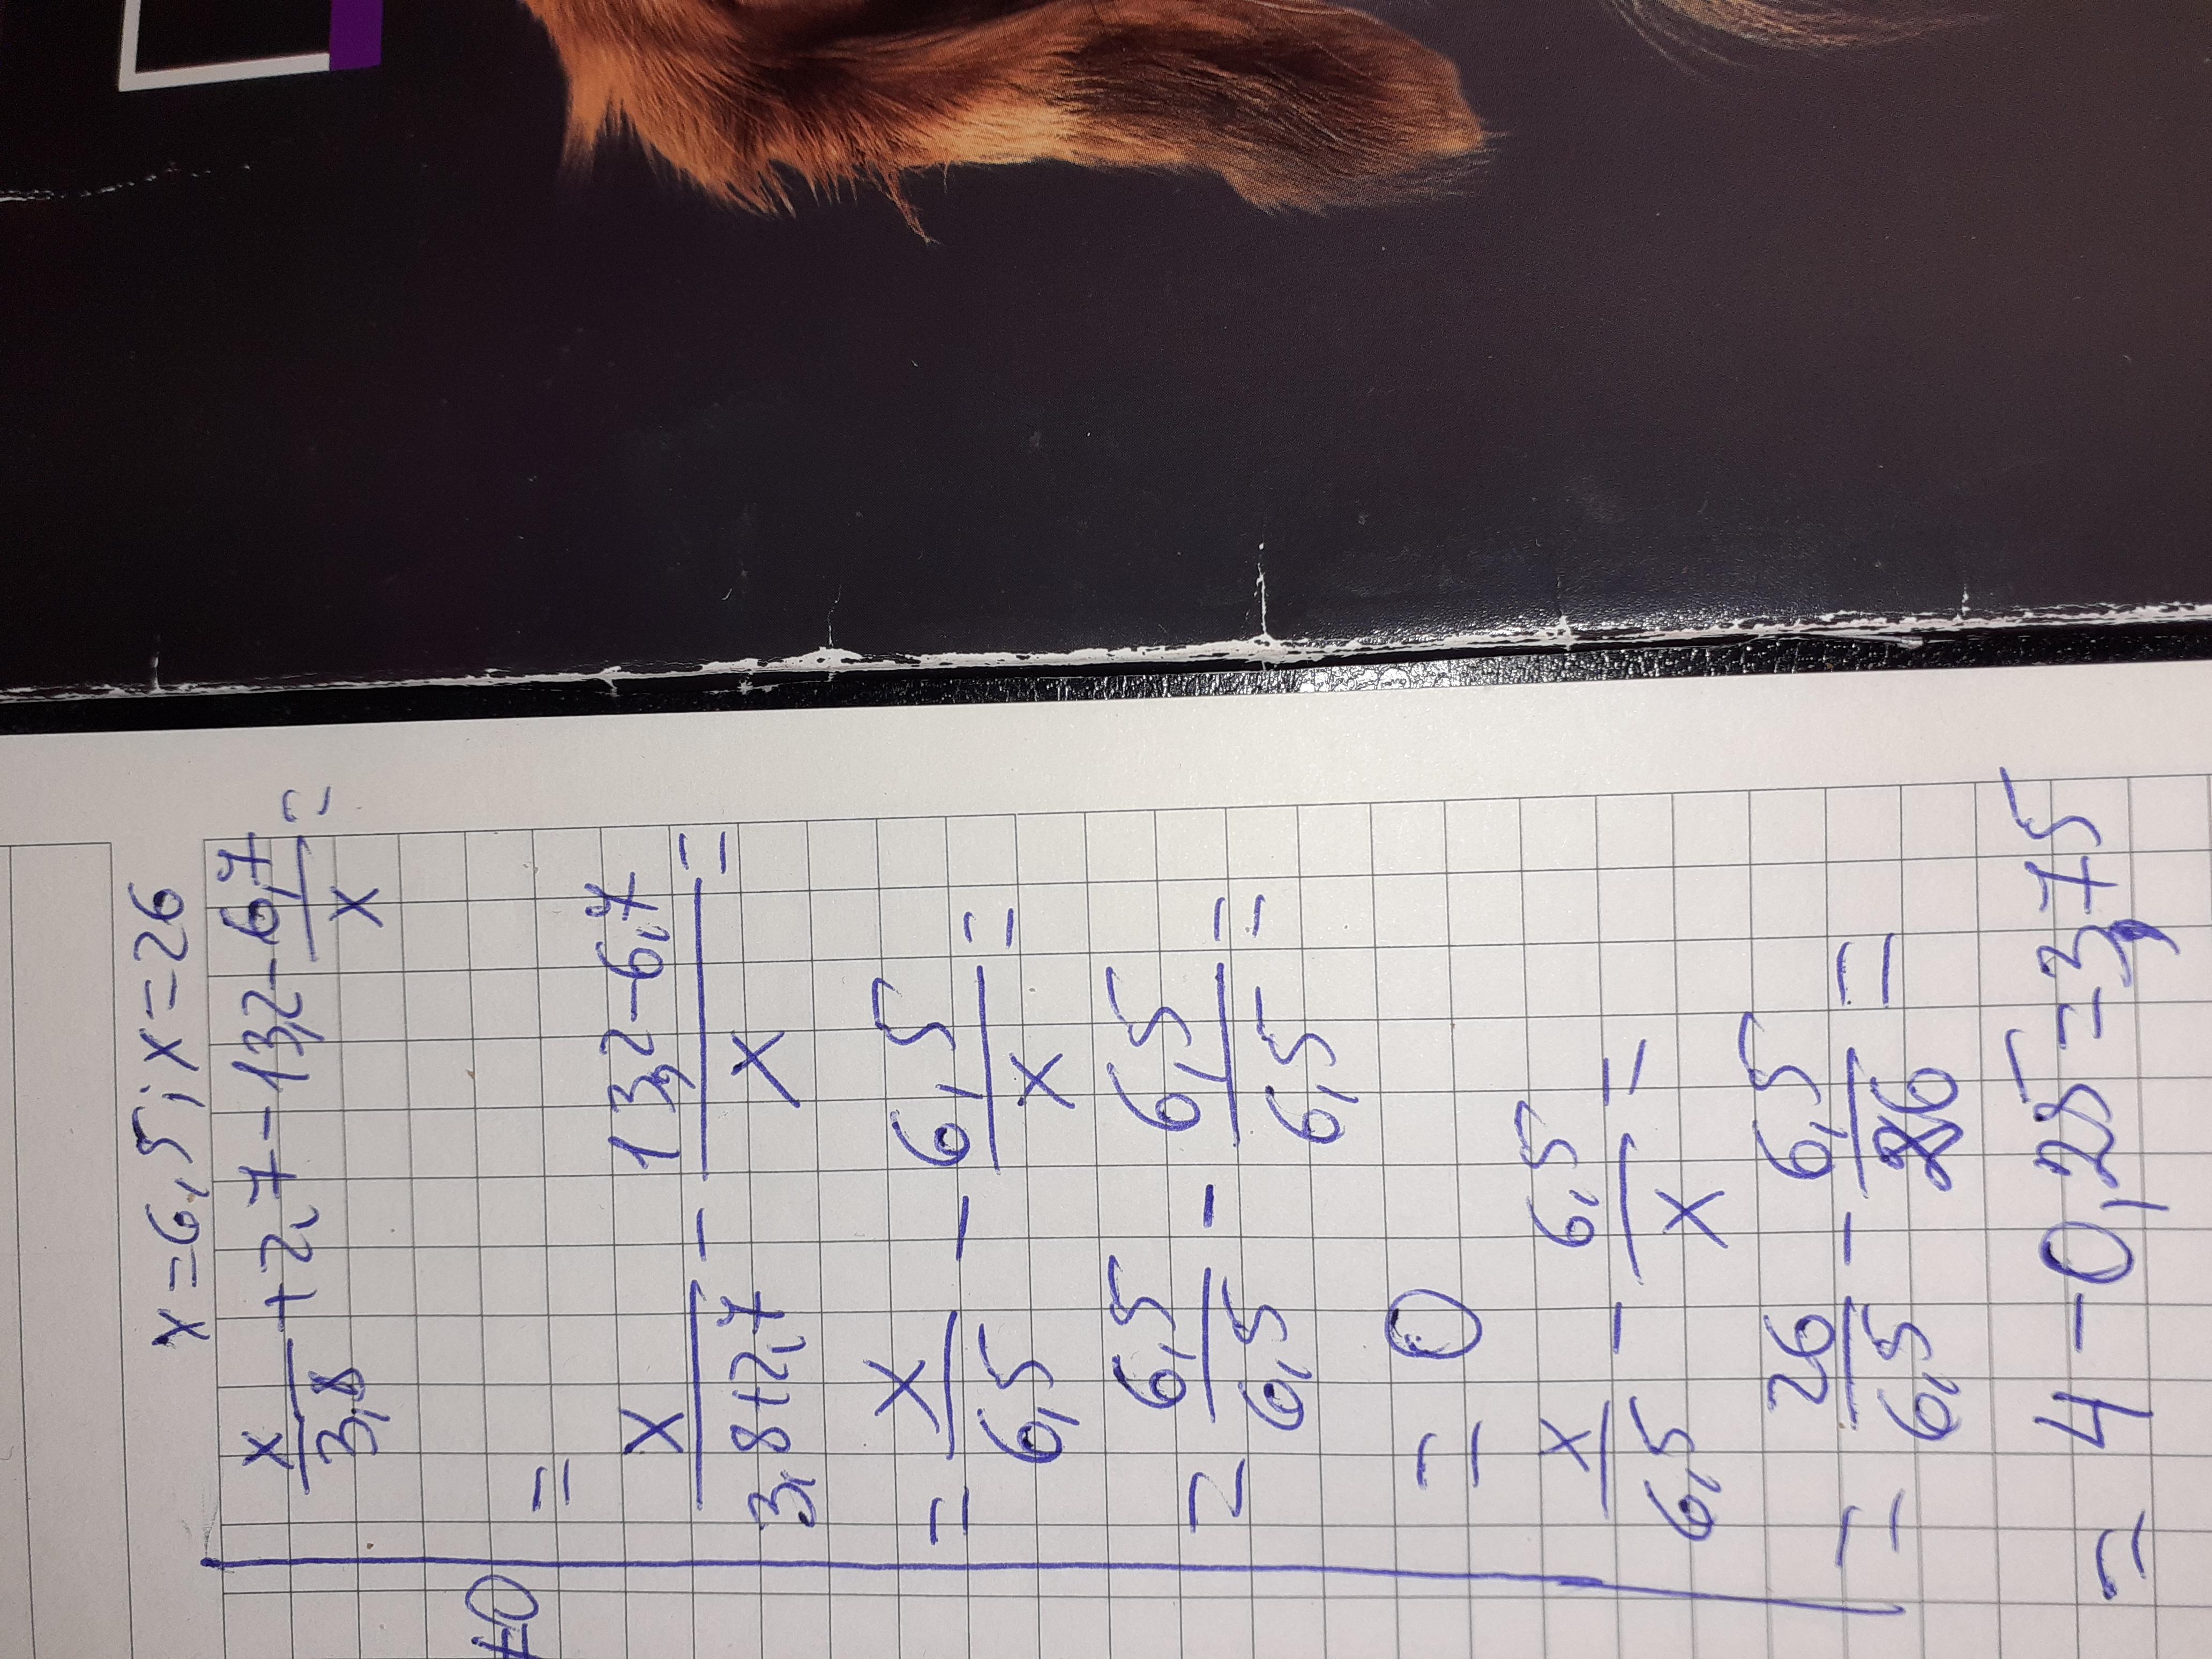 x=6,5; x=26
x/3,8 +2,7-13,2-6,7/x =
=
x/3,8+2,7 - 13,2-6,7/x =
= x/6,5 - 6,5/x =
= 6,5/6,5 - 6,5/6,5 =
= 0
x/6,5 - 6,5/x =
= 26/6,5 - 6,5/26 =
= 4-0,25=3,75